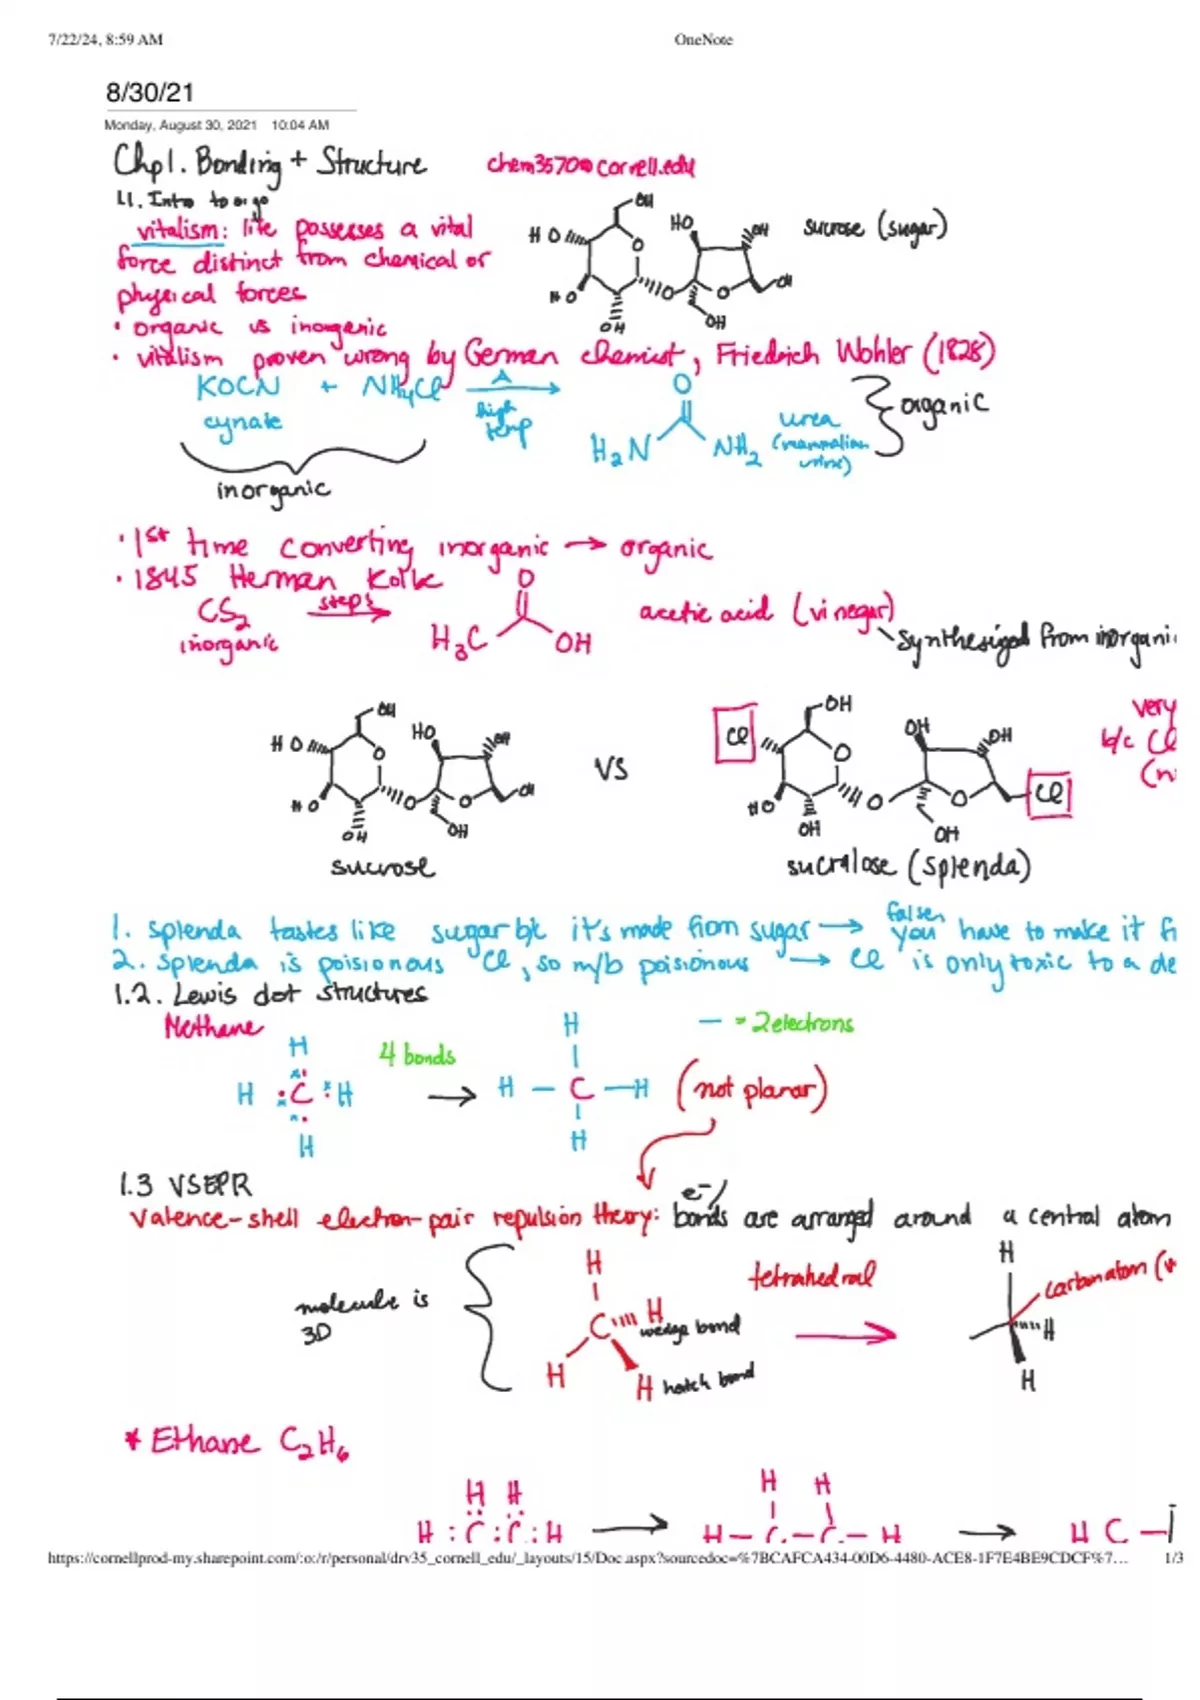 7/22/24, 8:59 AM
OneNote
8/30/21
Monday, August 30, 2021 10:04 AM
Chp1. Bonding + Structure chem3570@cornell.edu
1.1. Intro to orgo
vitalism: life possesses a vital
force distinct from chemical or
physical forces
OH
HO HO OH sucrose (sugar)
O
HO O O OH
OH OH
• organic vs inorganic
• vitalism proven wrong by German chemist, Friedrich Wohler (1828)
KOCN + NH4Cl Δ O
cynate high temp H2N NH2 urea (mammalian urine) organic
inorganic
• 1st time converting inorganic → organic
• 1845 Herman Kolbe
CS2 steps → O acetic acid (vinegar)
inorganic H3C OH synthesized from inorgani
OH
HO HO OH
O
HO O O OH
OH OH
sucrose
vs
OH
Cl O OH OH
HO O O Cl
OH OH
sucralose (splenda)
very
b/c Cl
(n
1. splenda tastes like sugar b/c it's made from sugar → false, you have to make it f
2. splenda is poisionous Cl, so m/b poisionous → Cl is only toxic to a de
1.2. Lewis dot structures
Methane
H
H : C : H
H
4 bonds →
H
H — C — H (not planar)
H
— = 2 electrons
1.3 VSEPR
Valence-shell electron-pair repulsion theory: e-/bonds are arranged around a central atom
molecule is
3D
H
C H wedge bond
H H hatch bond
tetrahedral →
H
carbon atom (
H
H
* Ethane C2H6
H H
H : C : C : H →
H H
H — C — C — H → H C —
https://cornellprod-my.sharepoint.com/:o:/r/personal/drv35_cornell_edu/_layouts/15/Doc.aspx?sourcedoc=%7BCAFCA434-00D6-4480-ACE8-1F7E4BE9CDCF%7…
1/3